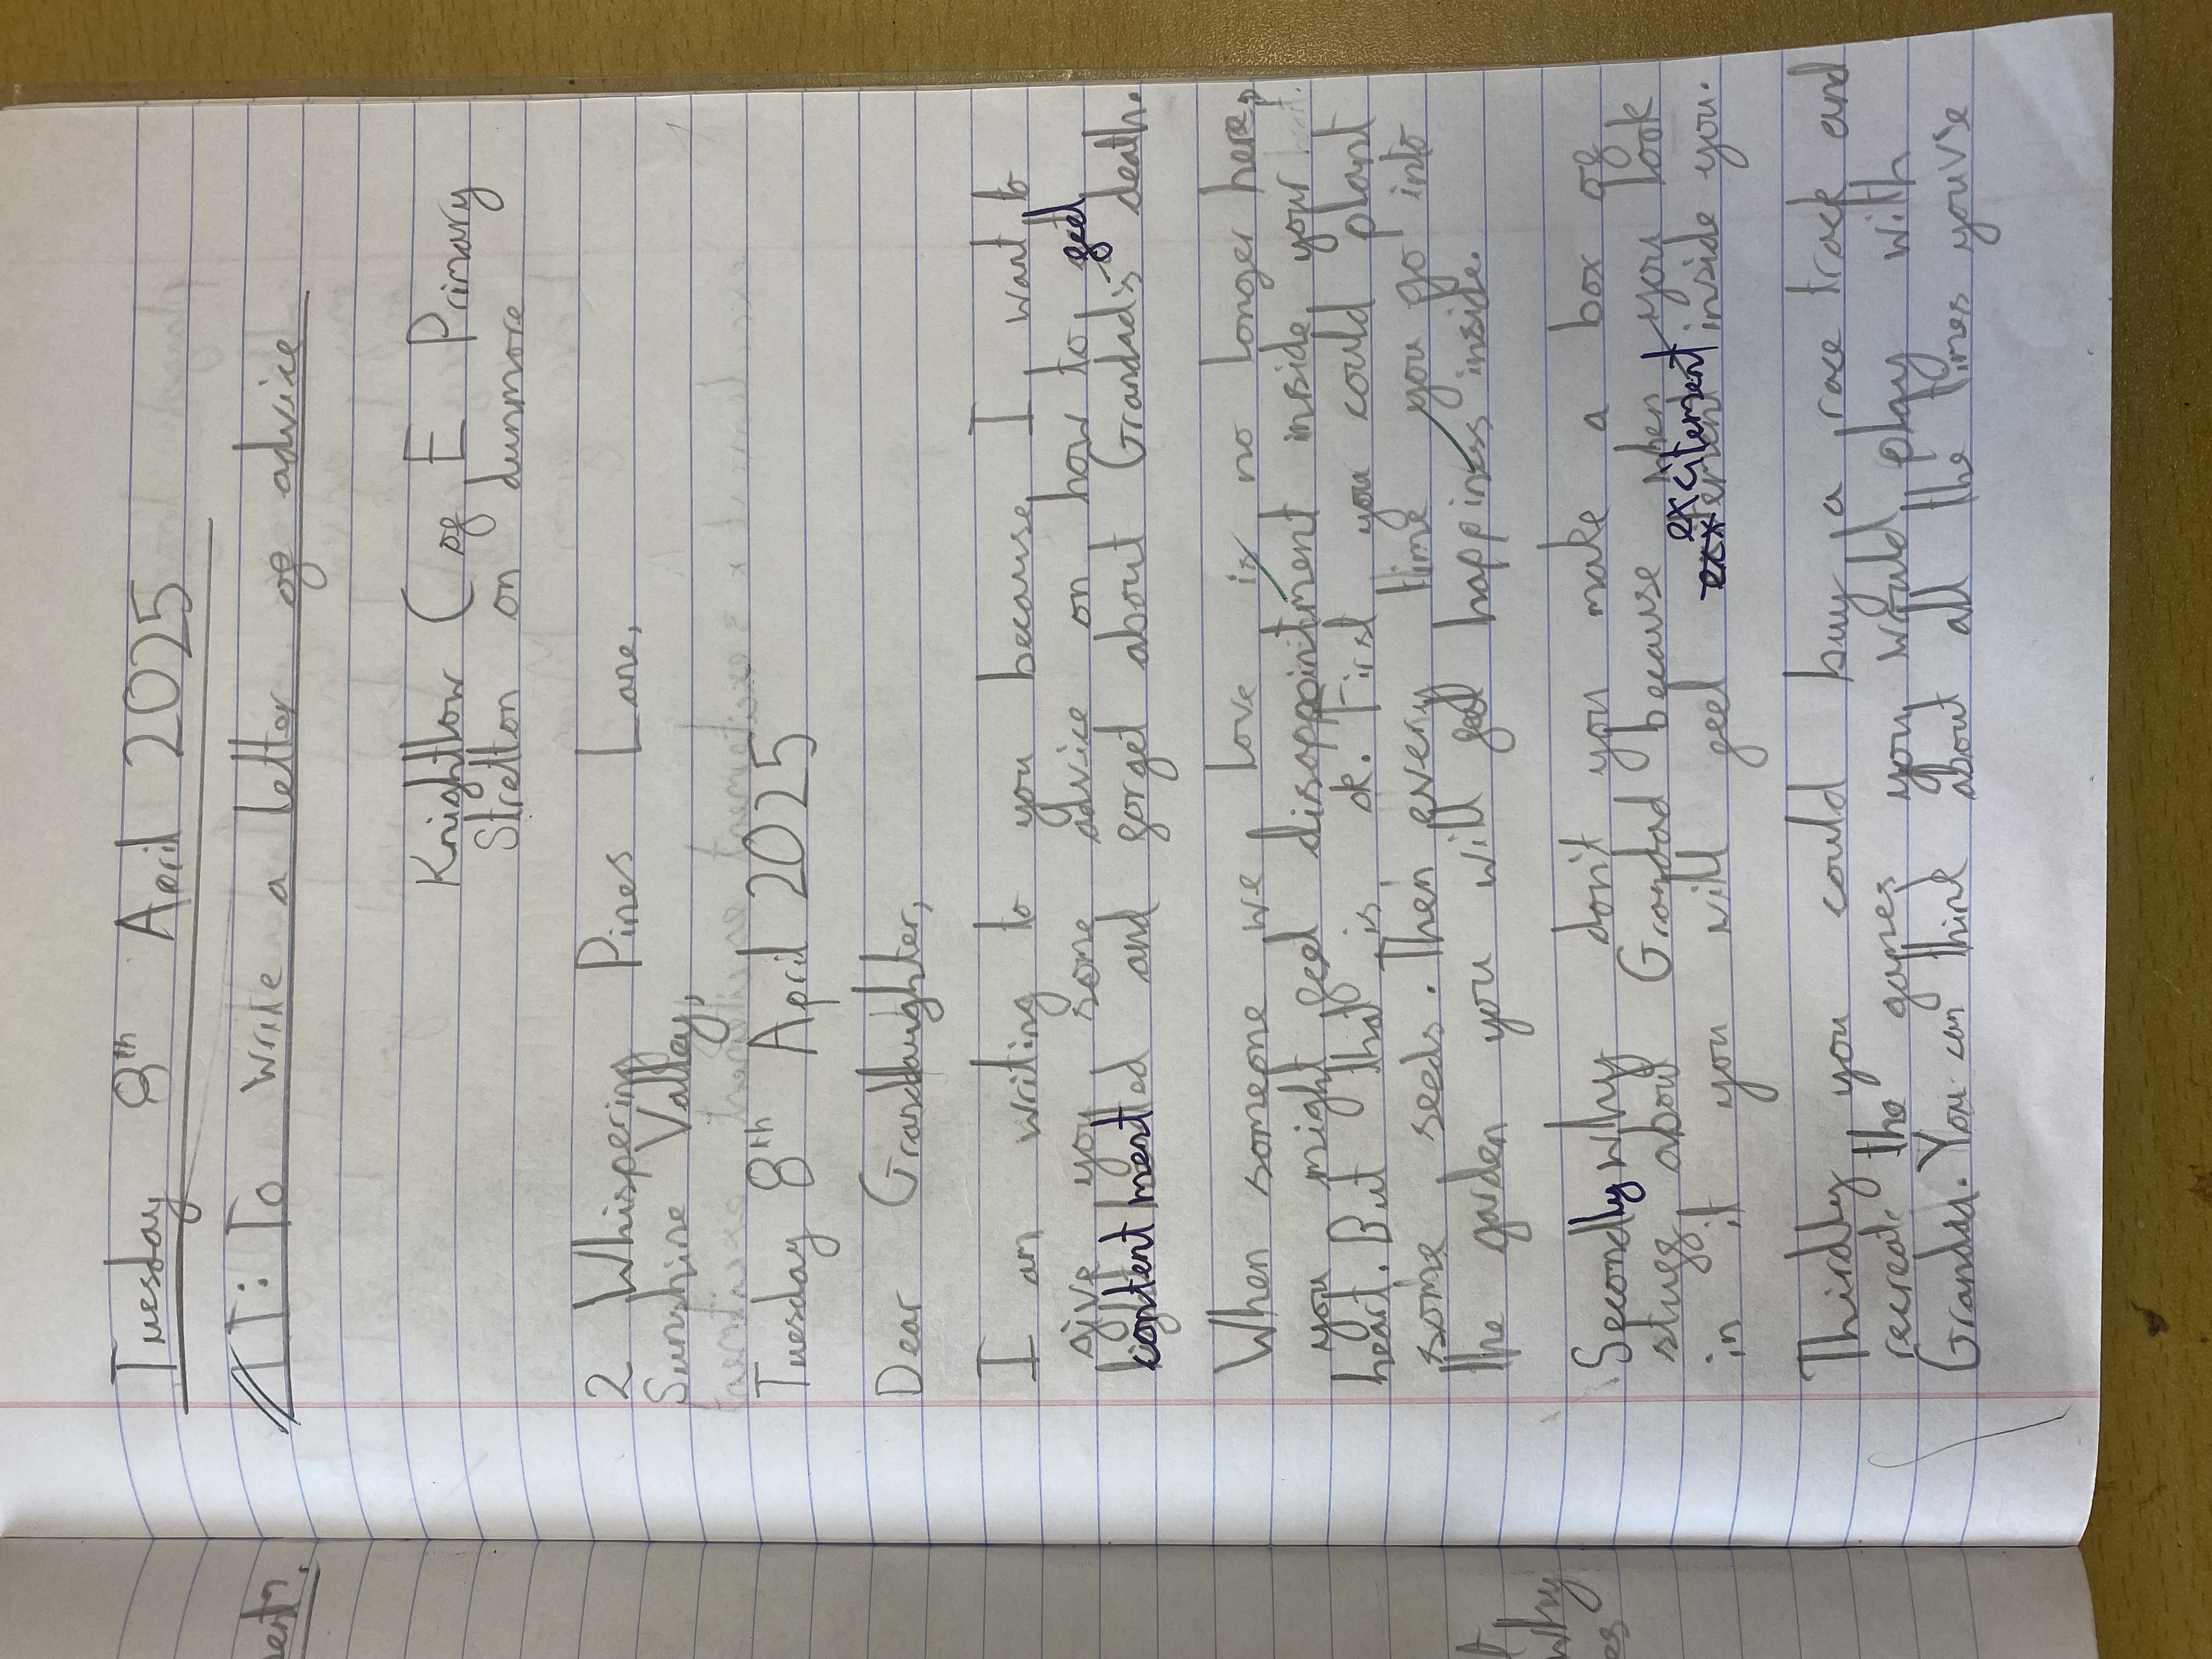 Tuesday 8th April 2025
LI: To write a letter of advice
Knightlow C of E Primary
Stretton on dunmore
2 Whispering Pines Lane,
Sunshine Valley,
Tuesday 8th April 2025
Dear Granddaughter,
I am writing to you because I want to
give you some advice on how to feel
contentmented and forget about Grandad's death.
When someone we love is no longer here,
you might feel disappointment inside your
heart. But that is ok. First you could plant
some seeds. Then every time you go into
the garden you will feel happiness inside.
Secondly why don't you make a box of
stuff about Grandad because when you look
in it you will feel excitement inside you.
Thirdly you could buy a race track and
recreate the games you would play with
Grandad. You can think about all the times youve
ment.
why
es